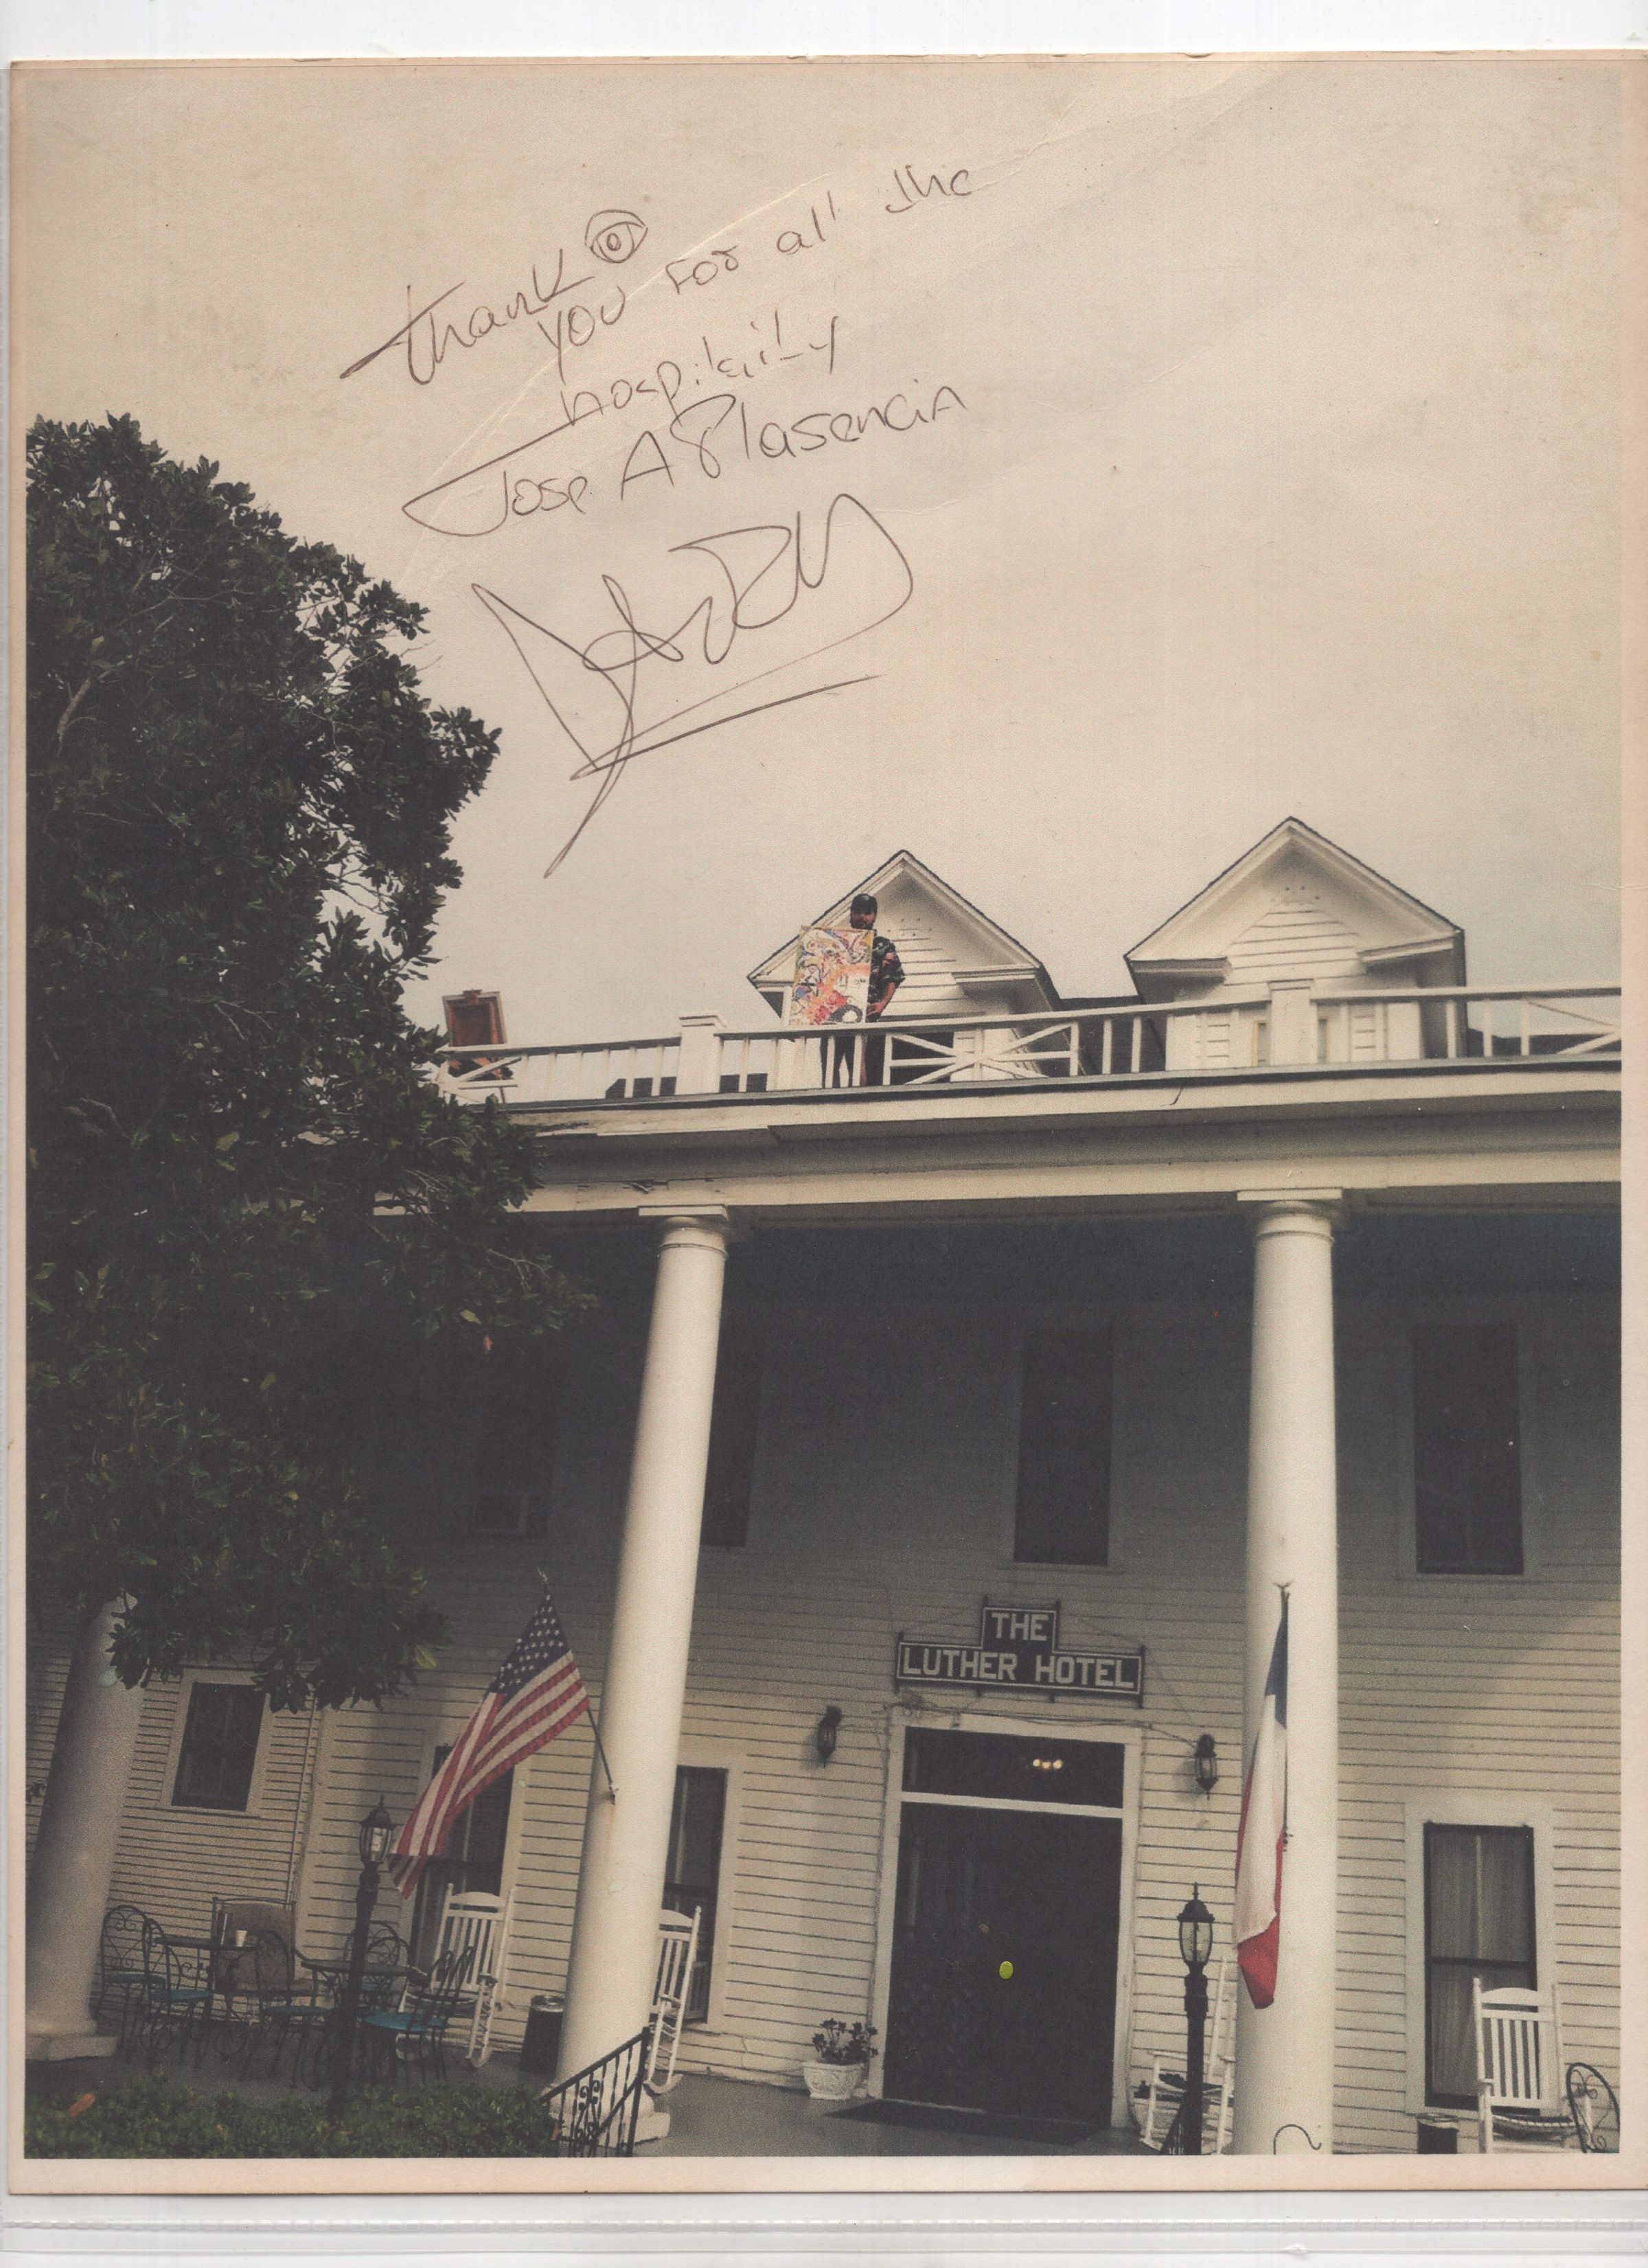 thank
you for all the
hospitality
Jose A Plasencia
THE
LUTHER HOTEL